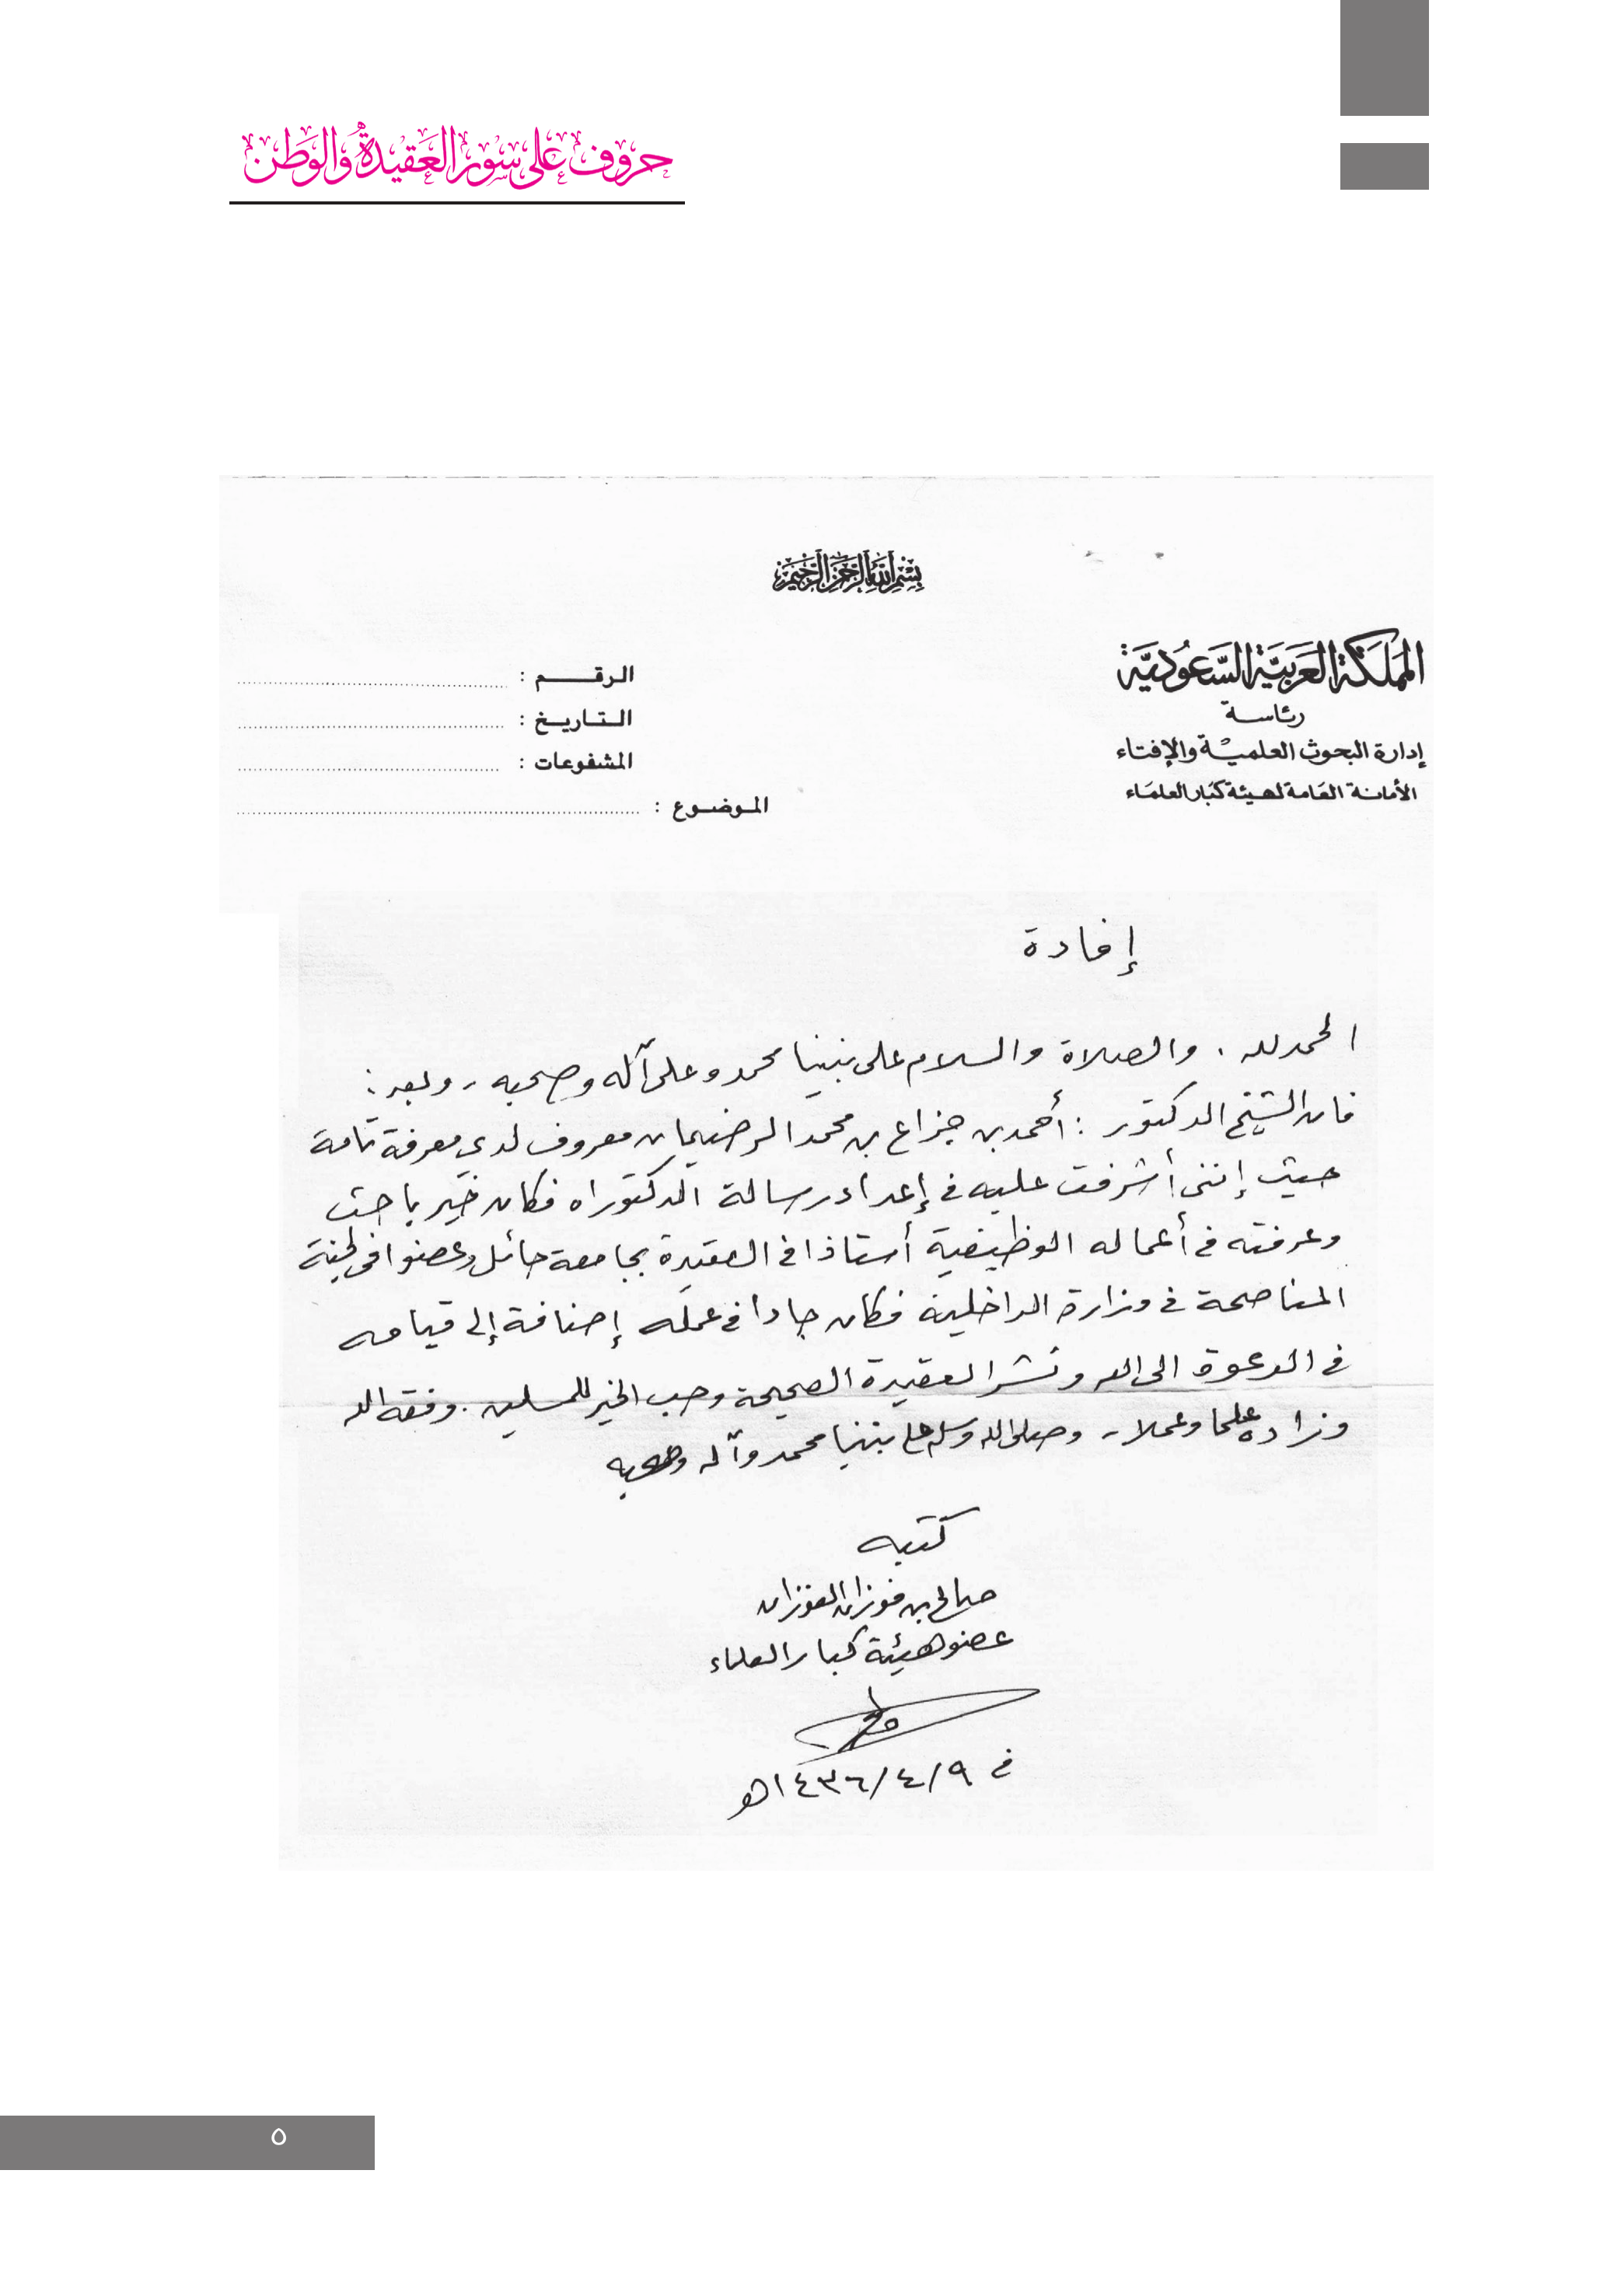 حروف على سور العقيدة والوطن
بسم الله الرحمن الرحيم
المملكة العربية السعودية
رئاسة
إدارة البحوث العلمية والإفتاء
الأمانة العامة لهيئة كبار العلماء
الرقم :
التاريخ :
المشفوعات :
الموضوع :
إفادة
الحمد لله . والصلاة والسلام على نبينا محمد وعلى آله وصحبه - وبعد :
فان الشيخ الدكتور : أحمد بن جزاع بن محمد الرضيمان معروف لدي معرفة تامة
حيث إنني أشرفت عليه في إعداد رسالة الدكتوراه فكان خير باحث
وعرفته في أعماله الوظيفية أستاذا في العقيدة بجامعة حائل وعضوا في لجنة
المناصحة في وزارة الداخلية فكان جادا في عمله إضافة إلى قيامه
في الدعوة الى الله ونشر العقيدة الصحيحة وحب الخير للمسلمين . وفقه الله
وزاده علما وعملا - وصلى الله وسلم على نبينا محمد وآله وصحبه
كتبه
صالح بن فوزان الفوزان
عضو هيئة كبار العلماء
في ٩/٤/١٤٣٦هـ
٥